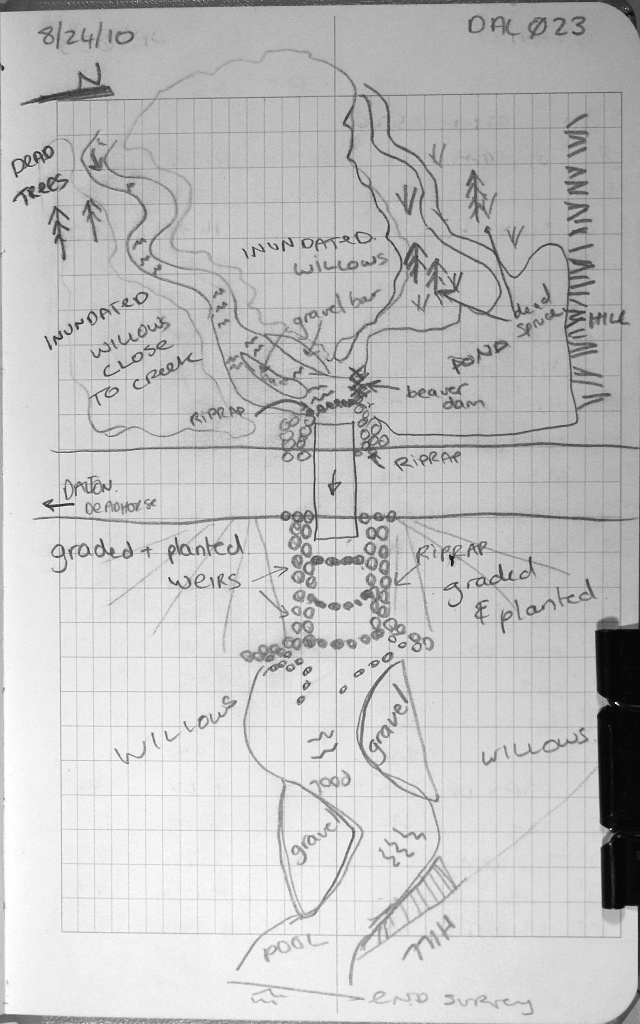 8/24/10
DAL Ø23
N
DEAD
TREES
INUNDATED
WILLOWS
INUNDATED
WILLOWS
CLOSE
TO CREEK
gravel bar
dead
spruce
HILL
POND
beaver
dam
RIPRAP
RIPRAP
DALTON
DEADHORSE
graded + planted
WEIRS
RIPRAP
graded
& planted
WILLOWS
gravel
WILLOWS
POOL
gravel
HILL
POOL
END SURVEY